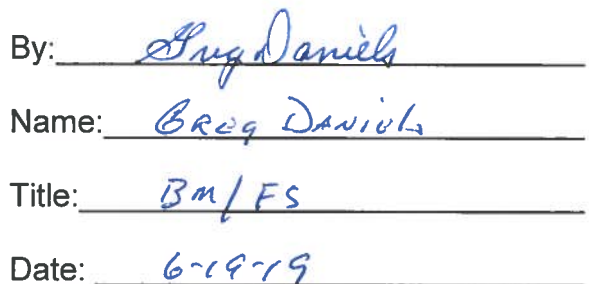 By: Greg Daniels
Name: GREG DANIELS
Title: BM/FS
Date: 6-19-19